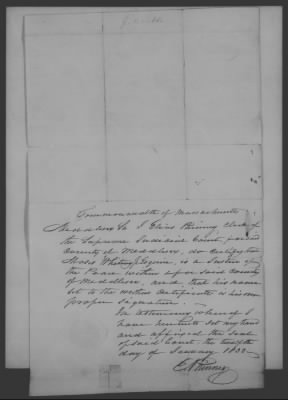 Commonwealth of Massachusetts
Middlesex Ss I Elias Phinney Clerk of
the Supreme Judicial Court,
County of Middlesex, do certify that
Moses Whitney Esquire, is a Justice of
the Peace within & for said County
of Middlesex, and that his name
set to the within certificate is his own
proper signature.
In testimony whereof I
have hereunto set my hand
and affixed the seal
of said Court, the twelfth
day of January 1833
E Phinney